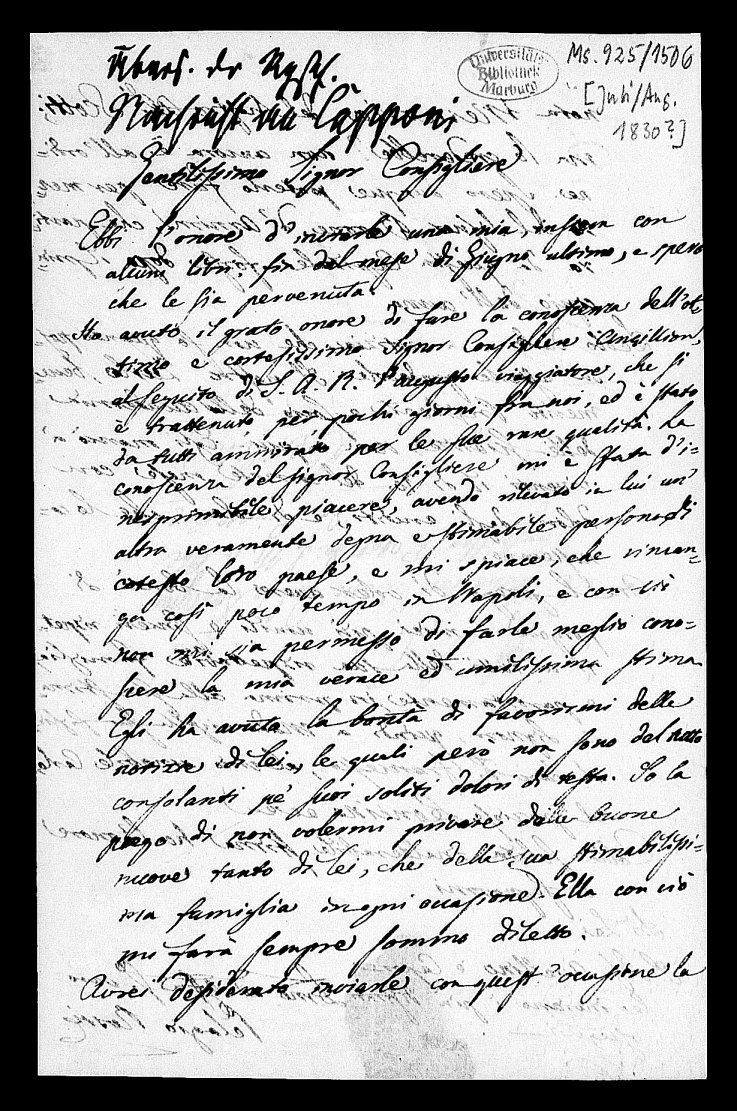 Übers. der Nschr.
Nachricht an Capponi
Universitäts
Bibliothek
Marburg
Ms. 925/1506
[Juli/Aug.
1830?]
Gentilissimo Signor Consigliere
Ebbi l'onore d'inviarle una mia, insiem con
alcuni libri fin dal mese di Giugno ultimo, e spero
che le sia pervenuta.
Ho avuto il grato onore di fare la conoscenza dell'ot
timo e cortesissimo Signor Consigliere
al seguito di S. A. R. l'augusto viaggiatore, che si
è trattenuto per pochi giorni fra noi, ed è stato
da tutti ammirato per le sue rare qualità. La
conoscenza del signor Consigliere mi è stata d'i-
nesprimibile piacere, avendo rilevato in lui un'
altra veramente degna e stimabile persona di
cotesto loro paese, e mi spiace, che riman-
ga così poco tempo in Napoli, e con ciò
non mi sia permesso di farle meglio cono-
scere la mia verace ed umilissima stima
Egli ha avuta la bontà di favorirmi delle
notizie di lei, le quali però non sono del tutto
consolanti pe' suoi soliti dolori di testa. Io la
prego di non volermi privare delle buone
nuove tanto di lei, che della sua stimabilissi-
ma famiglia in ogni occasione. Ella con ciò
mi farà sempre sommo diletto.
Avrei desiderato inviarle con quest'occasione la